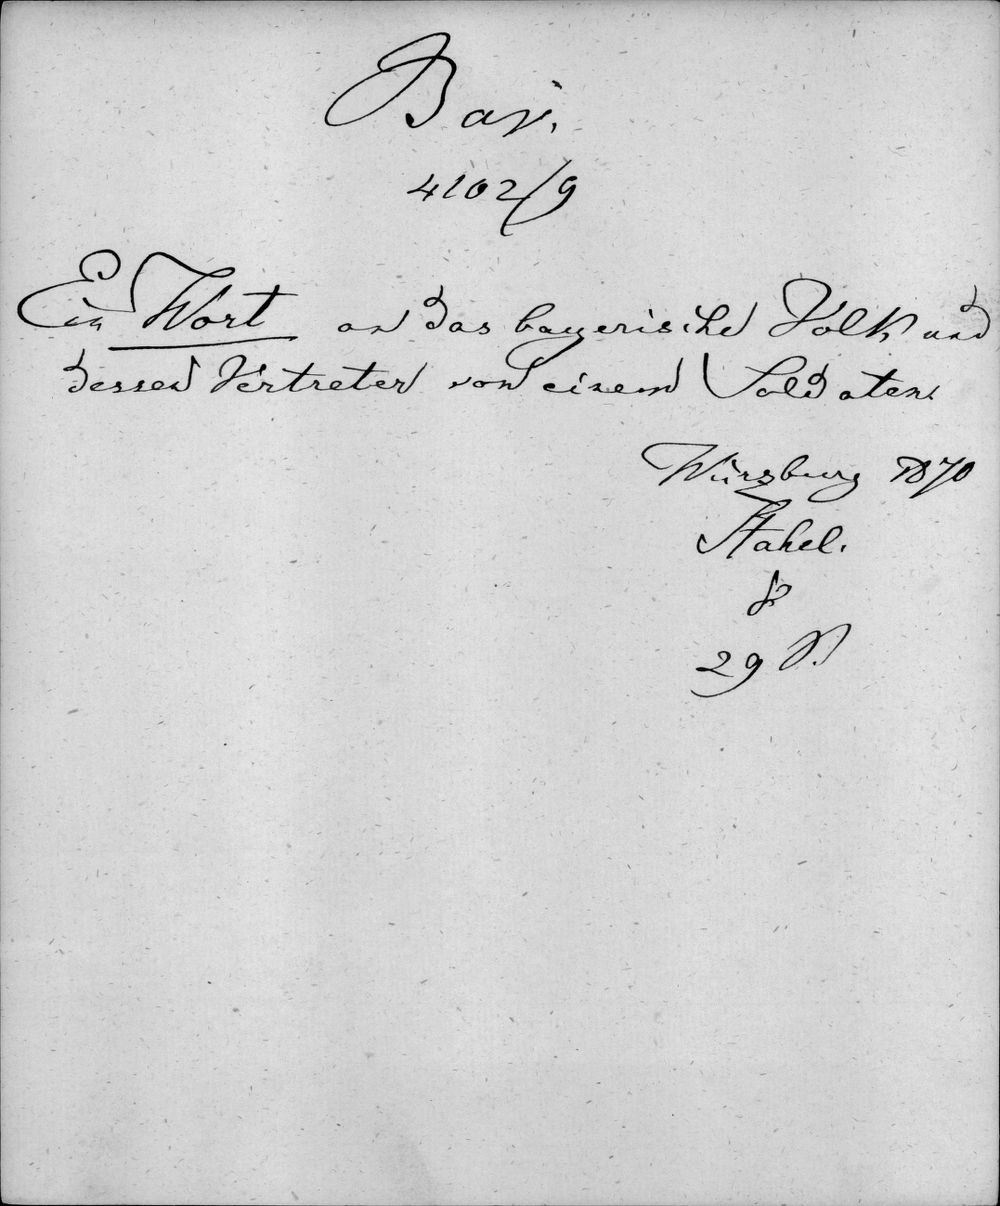 Bav.
4102/9
Ein Wort an das bayerische Volk und
dessen Vertreter von einem Soldaten.
Würzburg 1870
Stahel.
8
29 S.